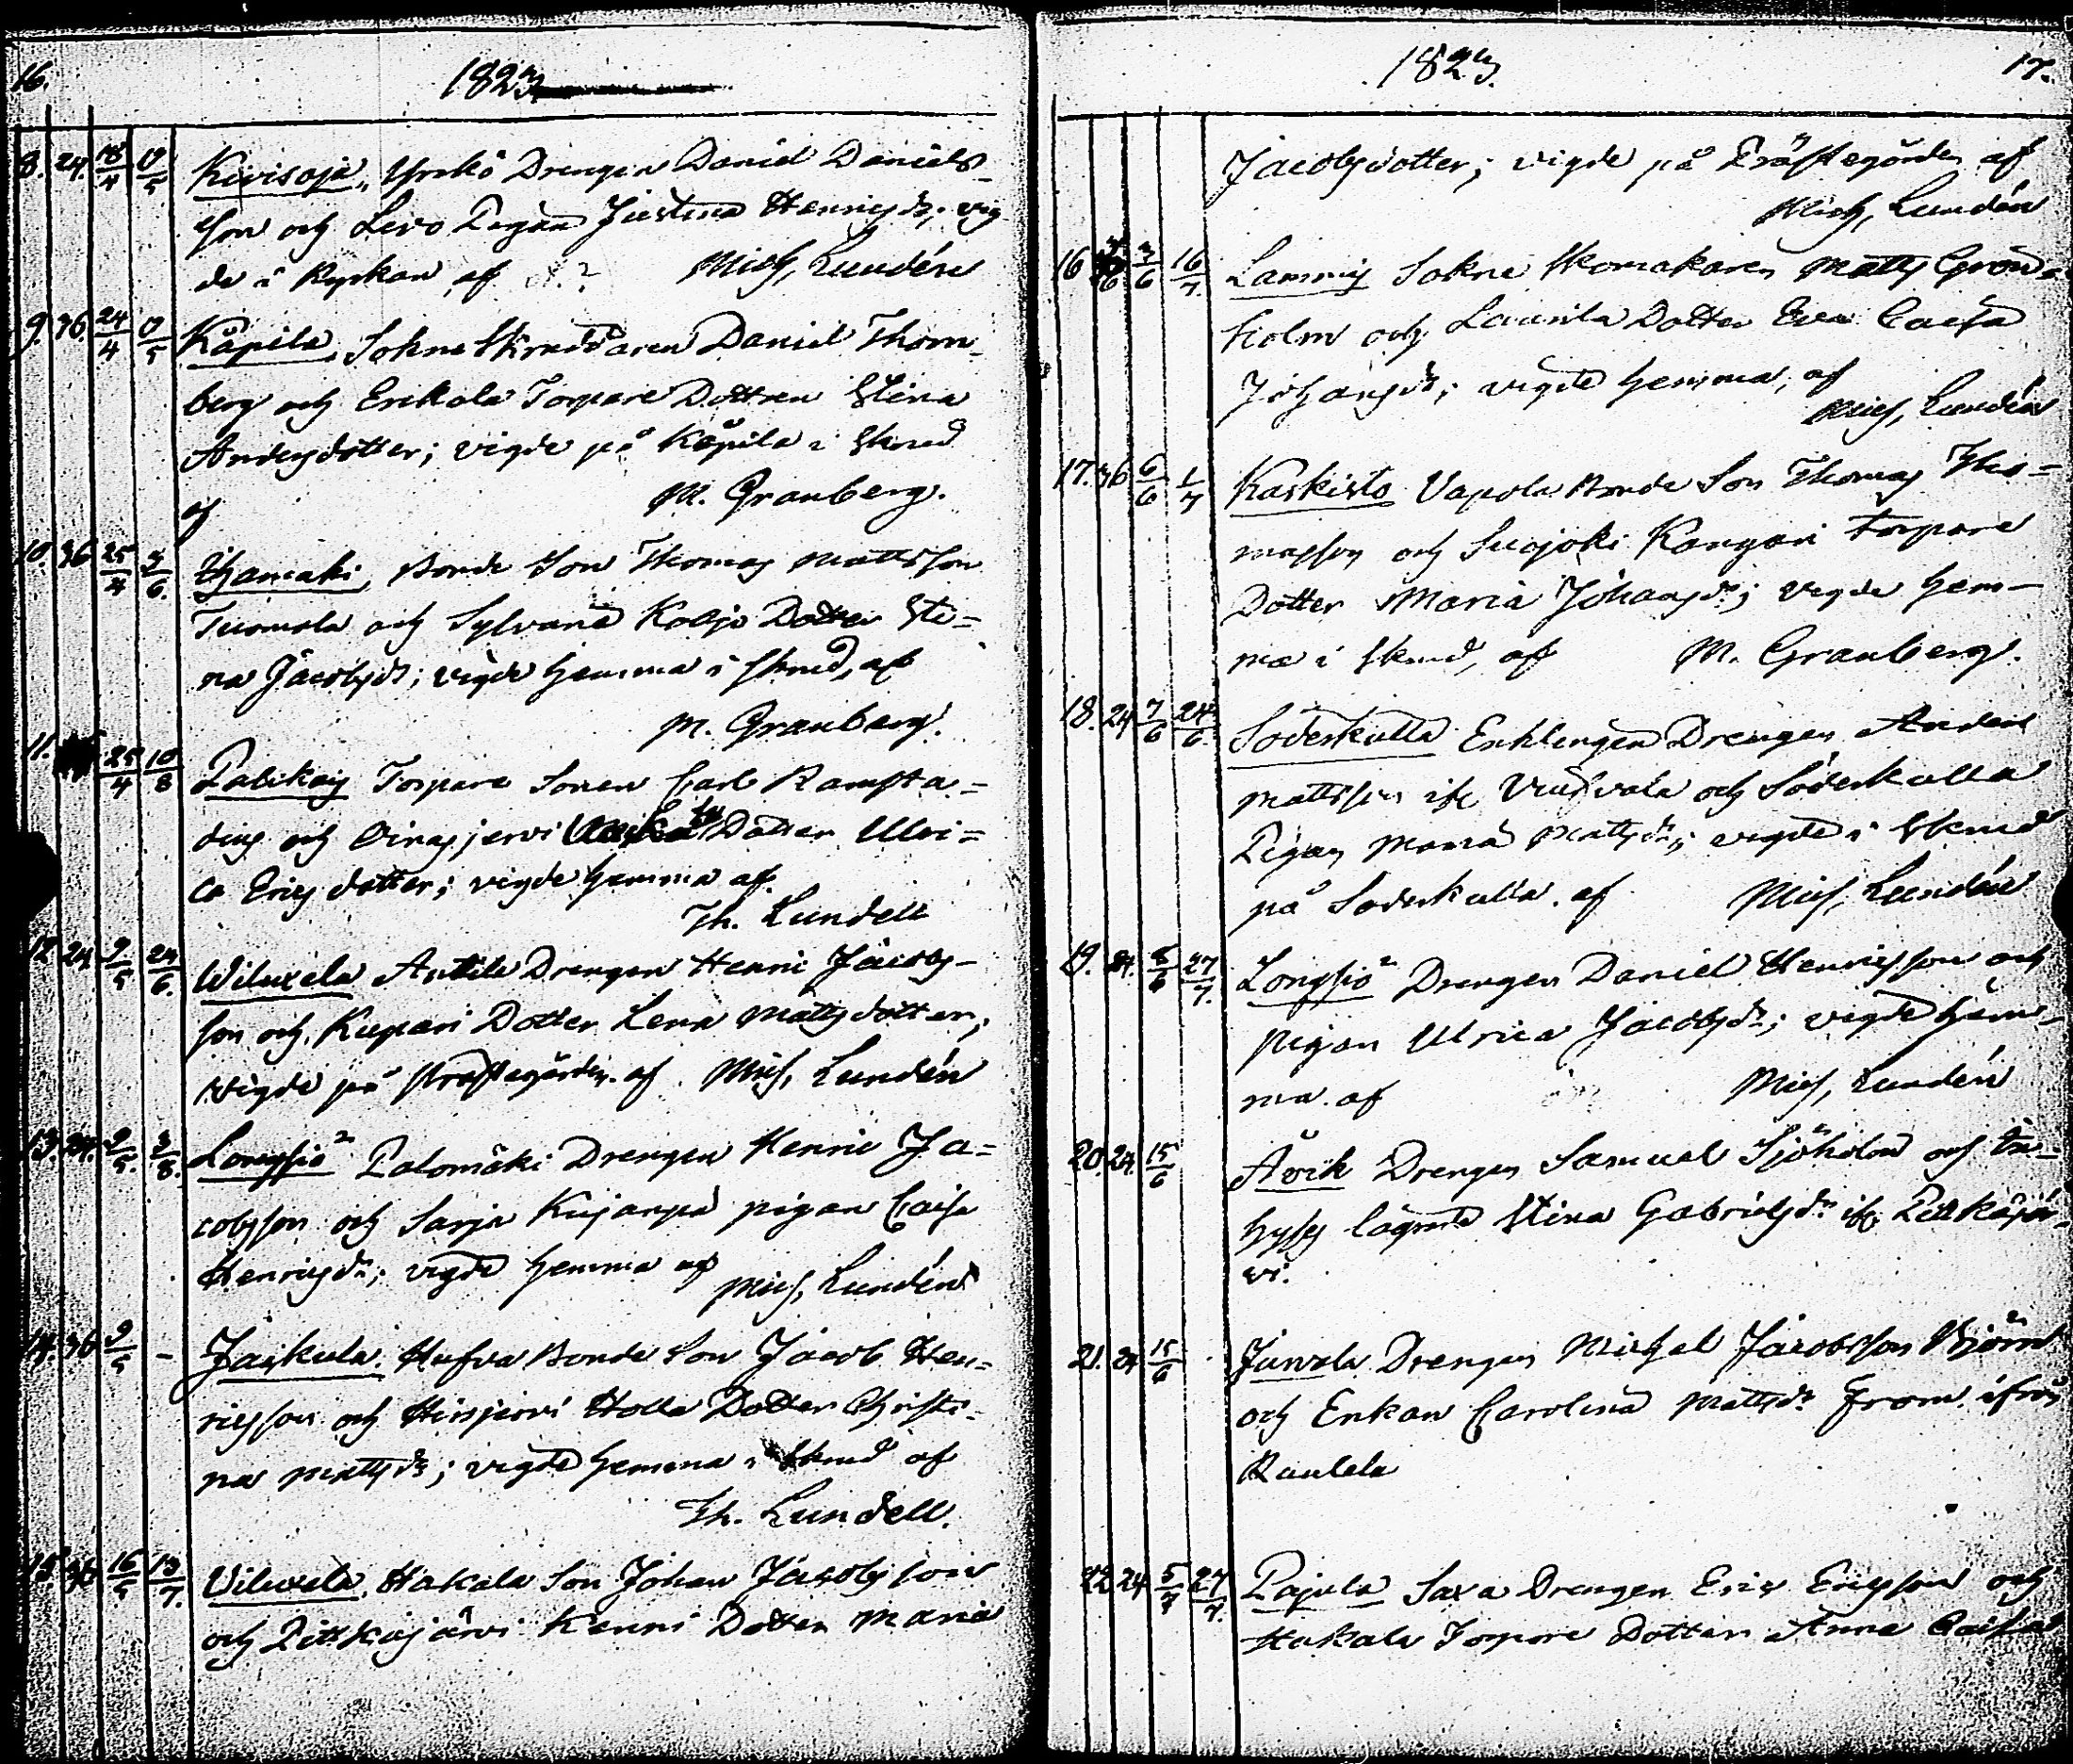 16.
1823
8. 24. 18/4 19/5 Kivisoja, Yrrkö Drengen Daniel Daniels-
son och Levo Pigan Justina Henricsdr; vig-
de i Kyrkan af Mich, Lundén
9. 36. 24/4 19/5 Kåpila, Sokne Skräddaren Daniel Thom-
berg och Erikola Torpare Dottren Stina
Andersdotter; vigde på Kåpila i Sknd
af M. Granberg.
10. 36 25/4 3/6. Ojamaki, Bonde Son Thomas Mattsson
Tuomola och Sylvana Koljo Dotter Sti=
na Jacobsdr; vigde hemma i Sknd, af
M. Granberg.
11. 25/4 10/8 Palikais Torpare Sonen Carl Ramsta=
ding och Oinasjervi Dotter Ulri=
ca Ericsdotter; vigde hemma af
Th. Lundell
12 24. 9/5 24/6. Wiluxela Anttila Drengen Henric Jacobs-
son och Kupari Dotter Lena Mattsdotter;
vigde på Prästegården af Mich, Lundén
13. 24. 9/5. 3/8. Longsio Palomäki Drengen Henric Ja=
cobsson och Sarja Kujanpä pigan Caisa
Henricsdr; vigde hemma af Mich, Lundén
14. 36 9/5 - Jäiskula. Hufva Bonde Son Jacob Hen=
ricsson och Hirsjervi Holla Dotter Christi=
na Mattsdr; vigde hemma i Sknd af
Th. Lundell.
15. 36 16/5 13/7. Viluxela. Hakala Son Johan Jacobsson
och Pittkäjärvi Kenni Dotter Maria
1823.
17.
Jacobsdotter; vigde på Prästegården af
Mich, Lundén
16 3/6 16/7. Lammis Sokne Skomakaren Matts Grön=
holm och Laurila Dotter Eva Caisa
Johansdr; vigde hemma, af
Mich, Lundén
17. 36 6/6 1/7 Kaskisto Vapola Bonde Son Thomas Tho=
masson och Suojoki Kangari Torpare
Dotter Maria Johansdr; vigde hem-
ma i Sknd, af M. Granberg.
18. 24 7/6 24/6. Söderkulla Enklingen Drengen Anders
Mattsson ifr och Söderkulla
Pigan Maria Mattsdr; vigde i Sknd
på Söderkulla. af Mich, Lundén
19. 24. 8/6 27/7. Longsio Drengen Daniel Henricsson och
pigan Ulrica Jacobsdr; vigde hem-
ma af Mich, Lundén
20. 24. 15/6 Åvik Drengen Samuel Sjöholm och
hyses Stina Gabrielsdr ifr Pitkäjär-
vi.
21. 24 15/6 Juvala Drengen Michel Jacobsson Björn
och Enkan Carolina Mattsdr From ifrån
Raulela
22 24 5/7 27/7. Pajula Saxa Drengen Eric Ericsson och
Hakala Torpare Dotter Anna Caisa